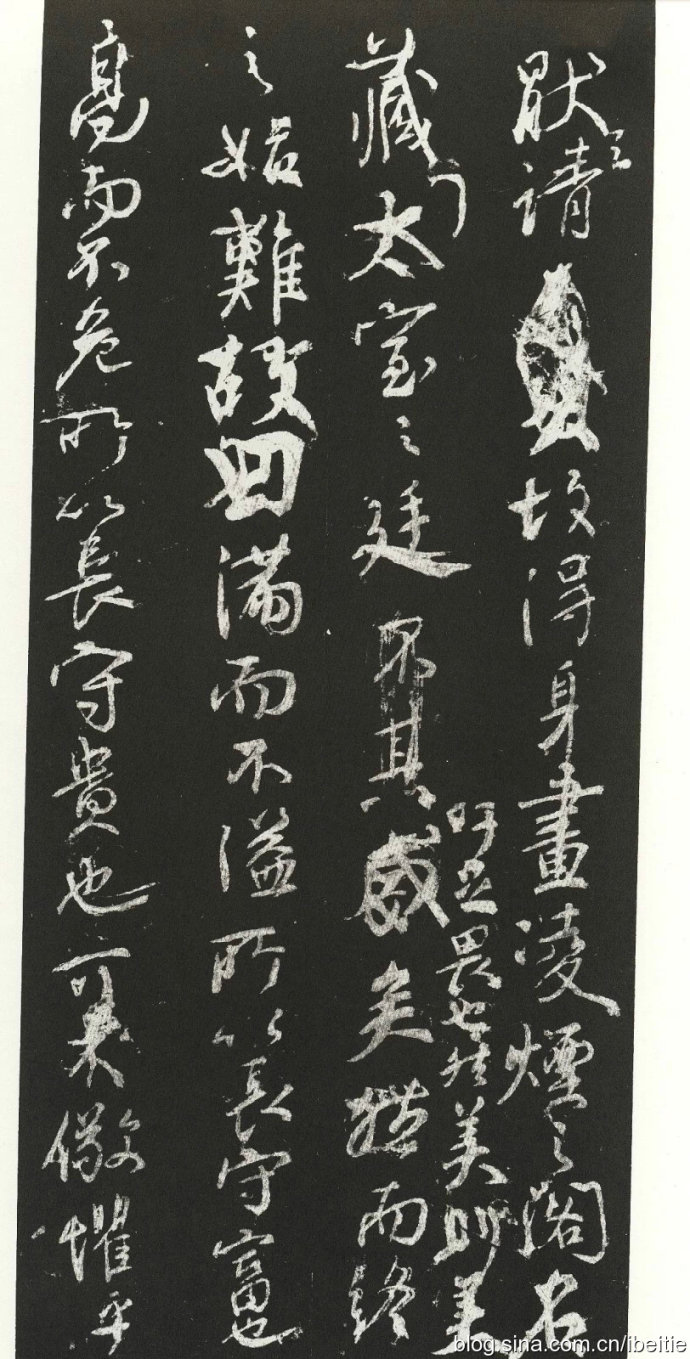 猒之請故得身畫凌煙之閣名
吁足畏也然美則美
藏太室之廷其盛矣然而終
之始難故曰滿而不溢所以長守富也
高而不危所以長守貴也可不儆懼乎
blog.sina.com.cn/ibeitie